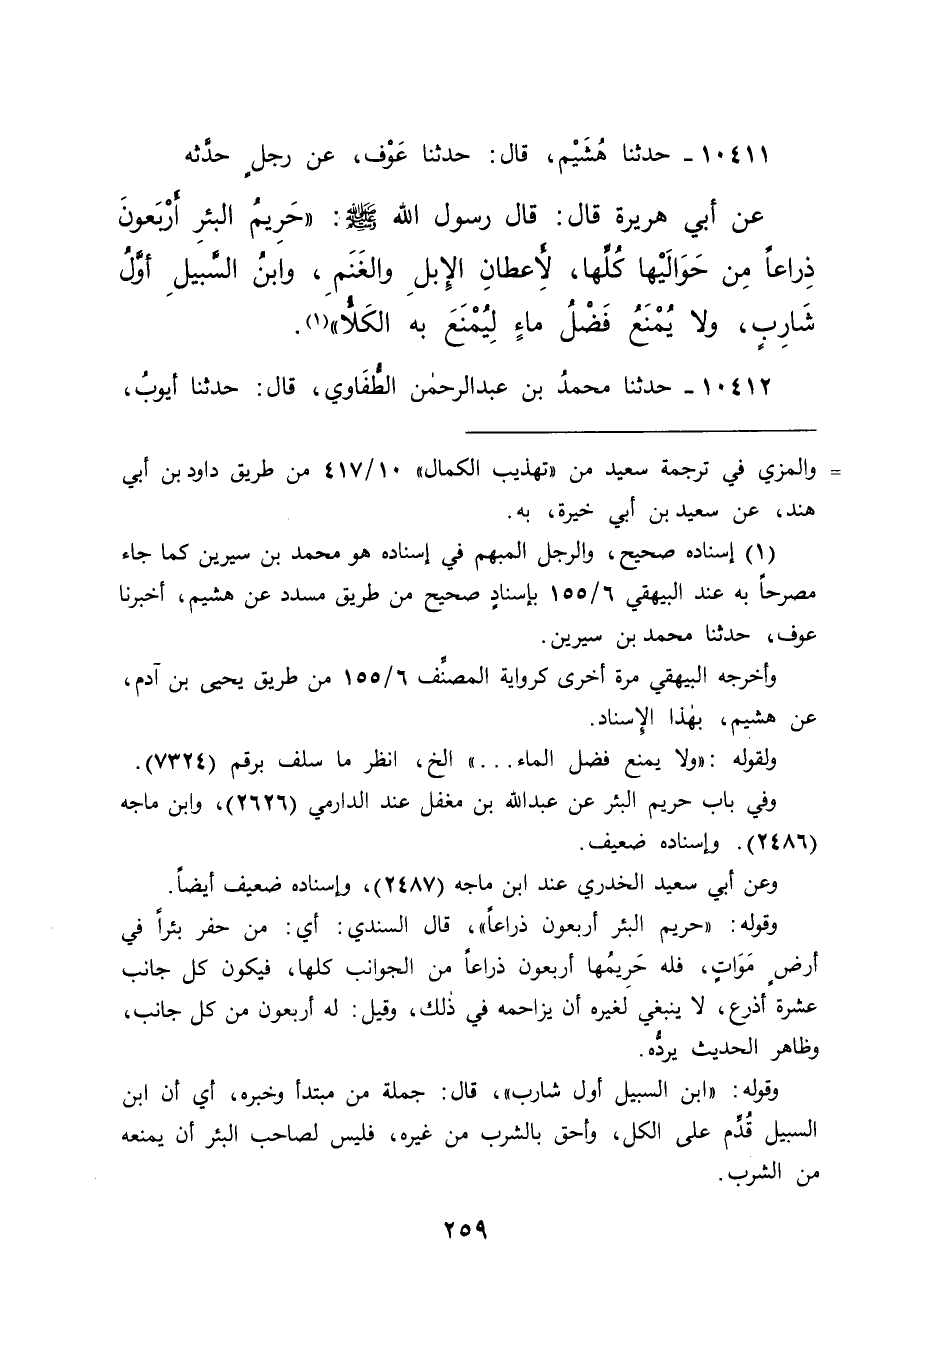 ١٠٤١١ - حدثنا هُشَيْم، قال: حدثنا عَوْف، عن رجلٍ حدَّثه
عن أبي هريرة قال: قال رسول الله ﷺ: «حَرِيمُ البئرِ أَرْبَعونَ
ذِراعاً مِن حَوَالَيْها كُلِّها، لأَعطانِ الإِبلِ والغَنَمِ، وابنُ السَّبيلِ أوَّلُ
شَارِبٍ، ولا يُمْنَعُ فَضْلُ ماءٍ لِيُمْنَعَ به الكَلأُ»(١).
١٠٤١٢ - حدثنا محمدُ بن عبدالرحمٰن الطُّفَاوي، قال: حدثنا أيوبُ،
= والمزي في ترجمة سعيد من «تهذيب الكمال» ٤١٧/١٠ من طريق داود بن أبي
هند، عن سعيد بن أبي خيرة، به.
(١) إسناده صحيح، والرجل المبهم في إسناده هو محمد بن سيرين كما جاء
مصرحاً به عند البيهقي ١٥٥/٦ بإسنادٍ صحيح من طريق مسدد عن هشيم، أخبرنا
عوف، حدثنا محمد بن سيرين.
وأخرجه البيهقي مرة أخرى كرواية المصنِّف ١٥٥/٦ من طريق يحيى بن آدم،
عن هشيم، بهٰذا الإِسناد.
ولقوله: «ولا يمنع فضل الماء...» الخ، انظر ما سلف برقم (٧٣٢٤).
وفي باب حريم البئر عن عبدالله بن مغفل عند الدارمي (٢٦٢٦)، وابن ماجه
(٢٤٨٦). وإسناده ضعيف.
وعن أبي سعيد الخدري عند ابن ماجه (٢٤٨٧)، وإسناده ضعيف أيضاً.
وقوله: «حريم البئر أربعون ذراعاً»، قال السندي: أي: من حفر بئراً في
أرضٍ مَوَاتٍ، فله حَرِيمُها أربعون ذراعاً من الجوانب كلها، فيكون كل جانب
عشرة أذرع، لا ينبغي لغيره أن يزاحمه في ذٰلك، وقيل: له أربعون من كل جانب،
وظاهر الحديث يردُّه.
وقوله: «ابن السبيل أول شارب»، قال: جملة من مبتدأ وخبره، أي أن ابن
السبيل قُدِّم على الكل، وأحق بالشرب من غيره، فليس لصاحب البئر أن يمنعه
من الشرب.
٢٥٩